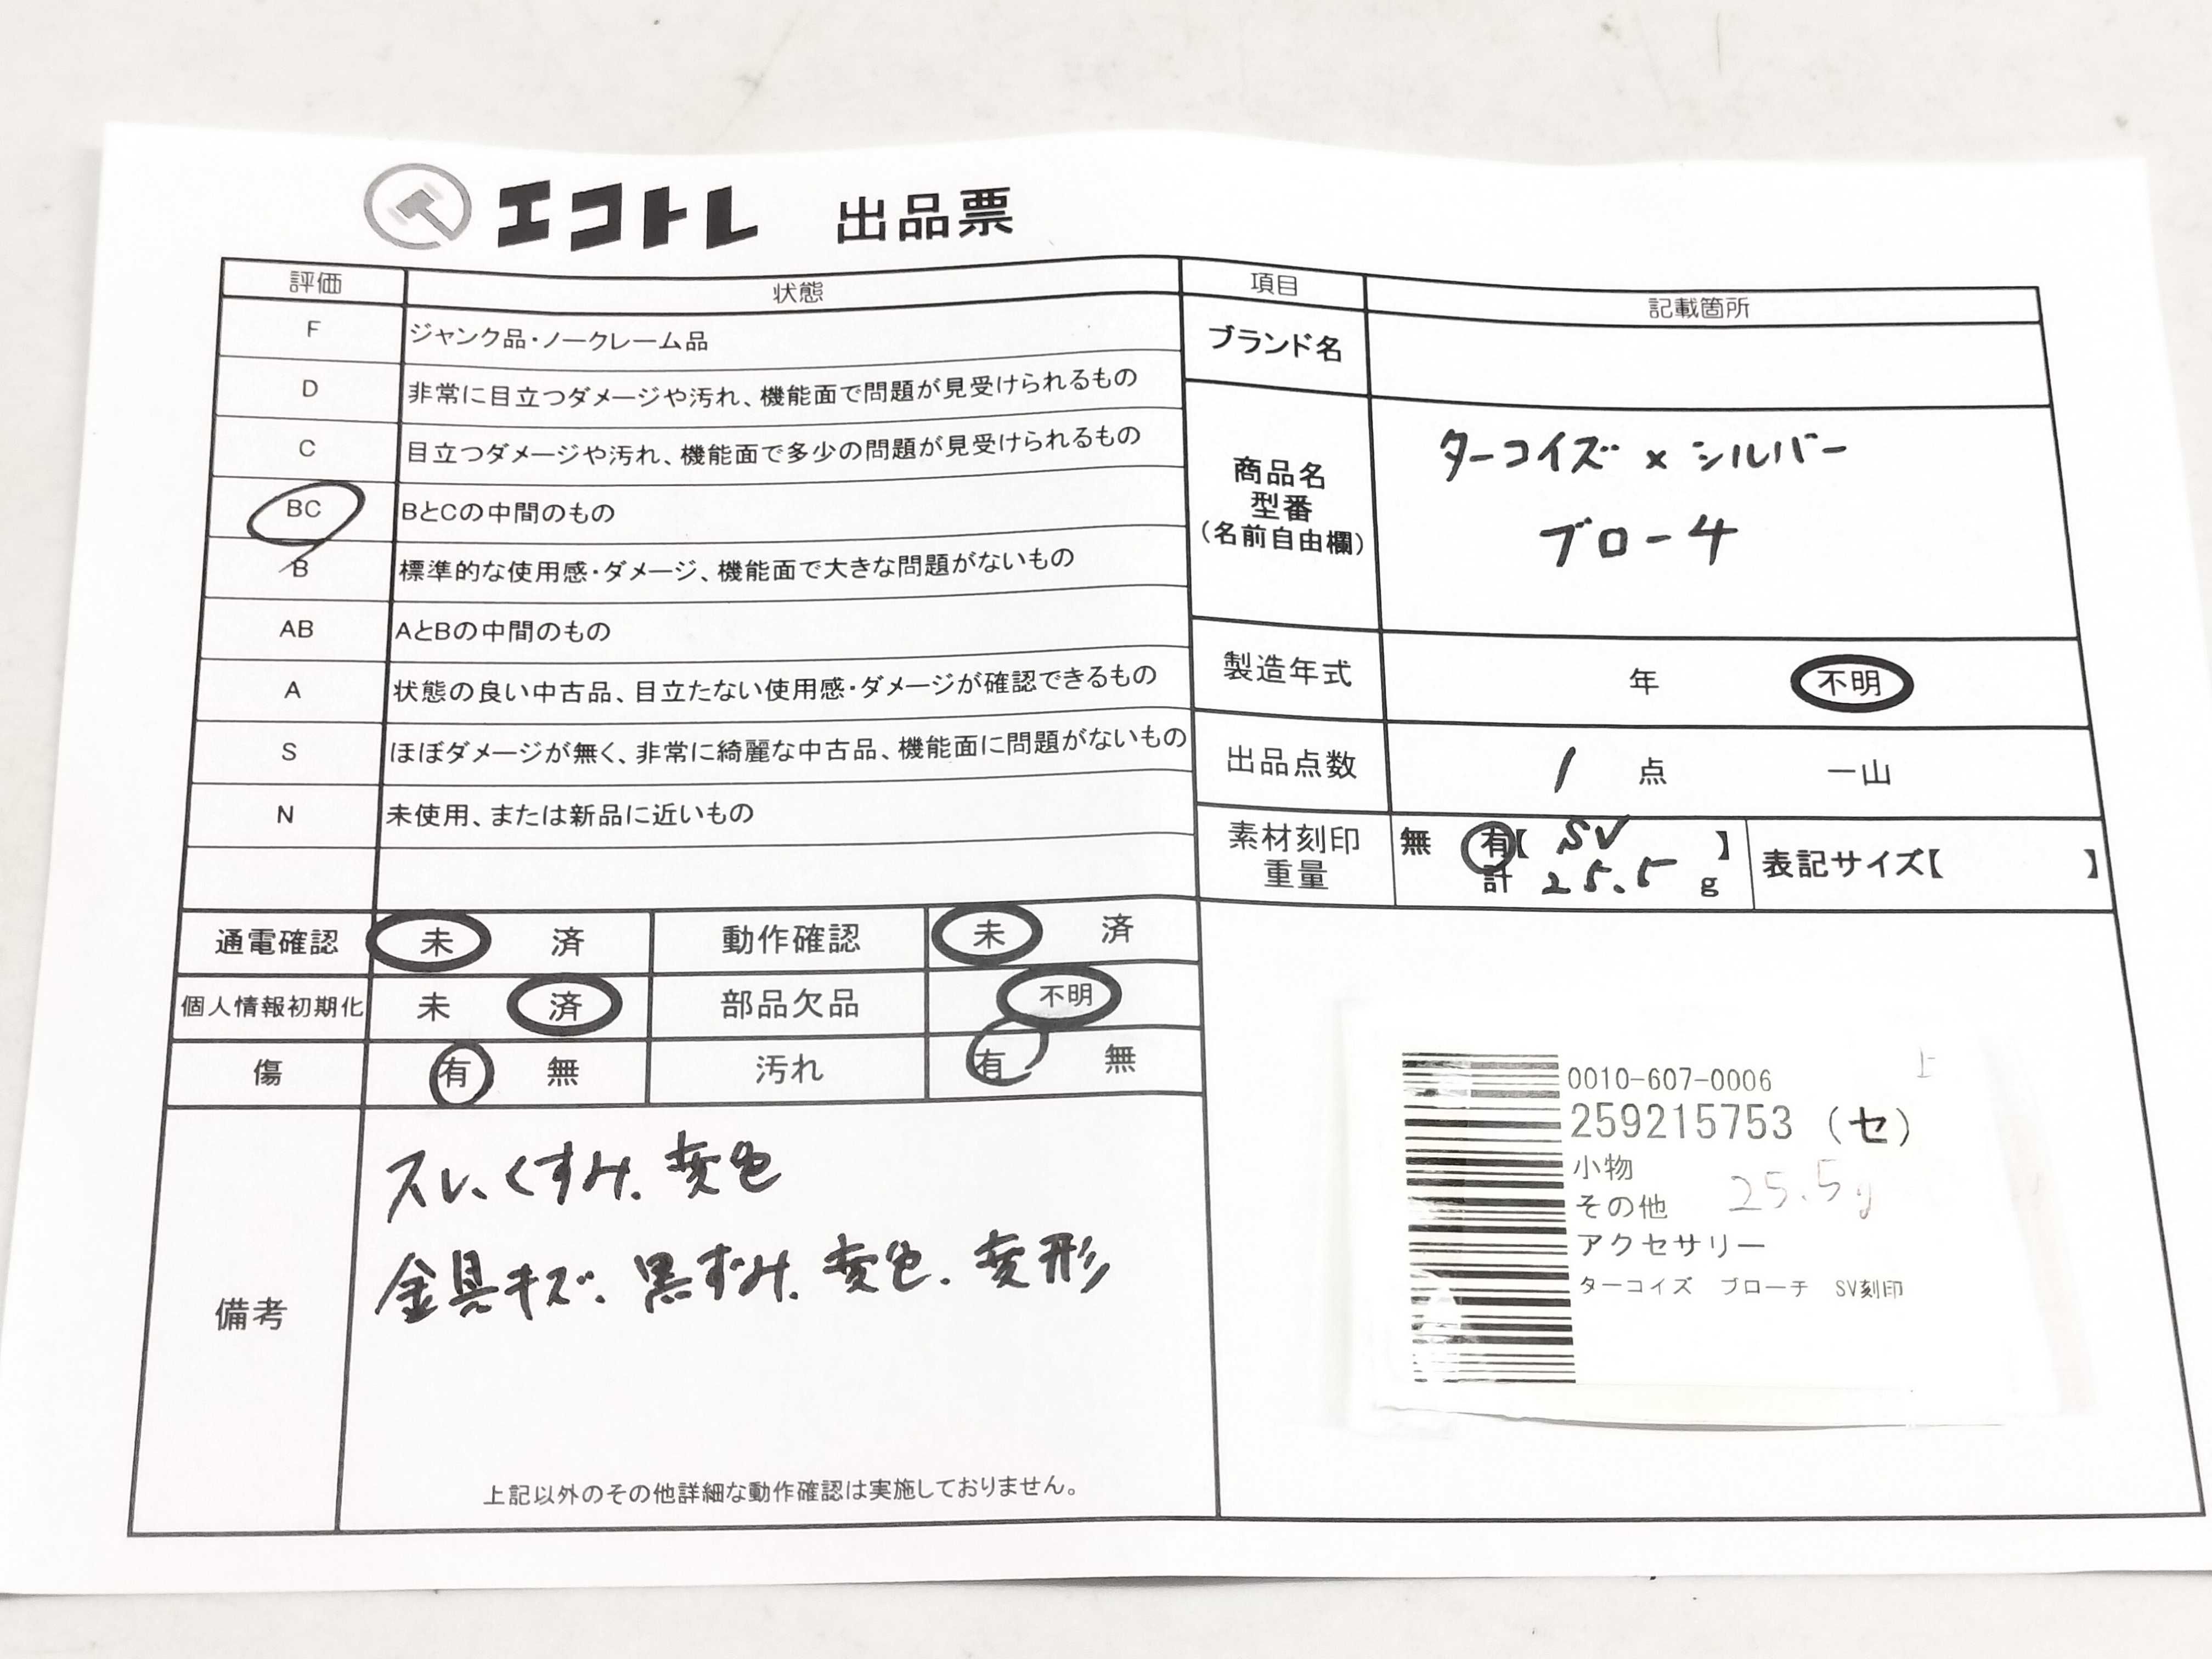 エコトレ 出品票
評価 状態
F ジャンク品・ノークレーム品
D 非常に目立つダメージや汚れ、機能面で問題が見受けられるもの
C 目立つダメージや汚れ、機能面で多少の問題が見受けられるもの
BC BとCの中間のもの
B 標準的な使用感・ダメージ、機能面で大きな問題がないもの
AB AとBの中間のもの
A 状態の良い中古品、目立たない使用感・ダメージが確認できるもの
S ほぼダメージが無く、非常に綺麗な中古品、機能面に問題がないもの
N 未使用、または新品に近いもの
項目 記載箇所
ブランド名
商品名
型番
(名前自由欄)
ターコイズ×シルバー
ブローチ
製造年式 年 不明
出品点数 1 点 一山
素材刻印
重量
無 有【 SV 】
計 25.5 g
表記サイズ【 】
通電確認 未 済 動作確認 未 済
個人情報初期化 未 済 部品欠品 不明
傷 有 無 汚れ 有 無
備考
スレ、くすみ、変色
金具キズ、黒ずみ、変色、変形
上記以外のその他詳細な動作確認は実施しておりません。
0010-607-0006 上
259215753 (セ)
小物
その他 25.5g
アクセサリー
ターコイズ ブローチ SV刻印